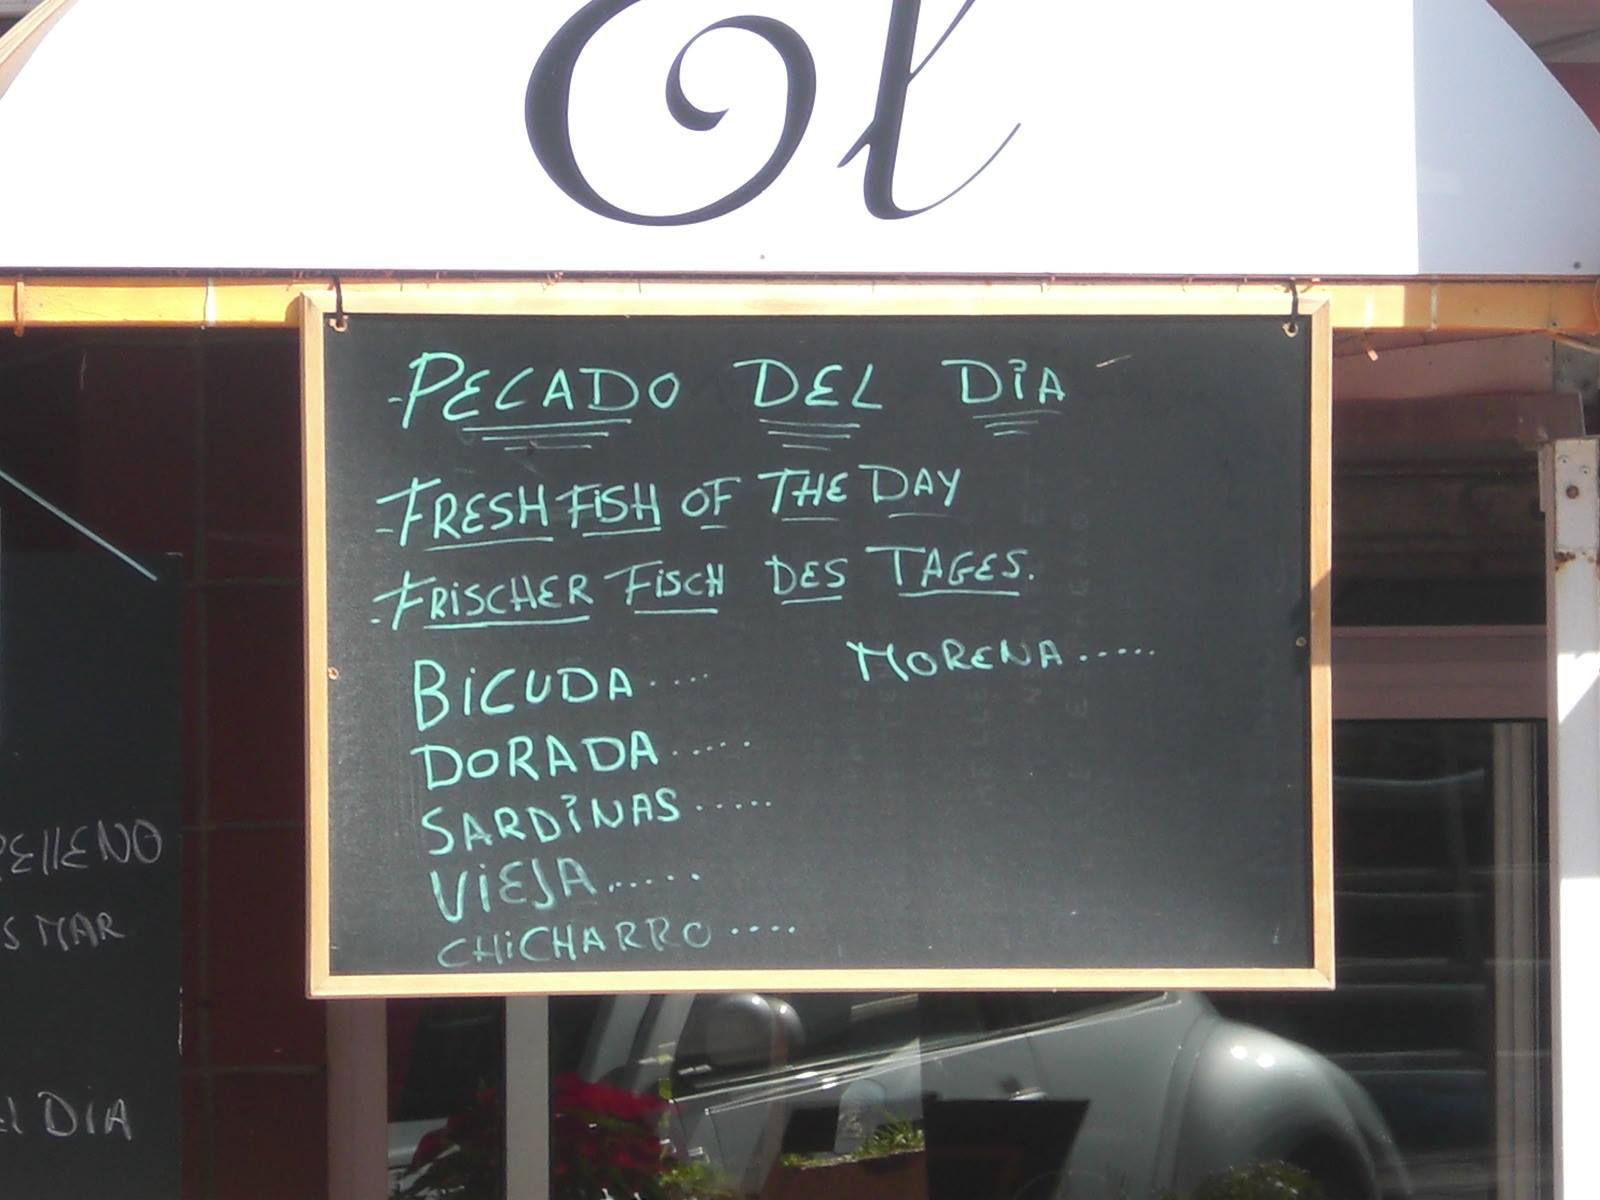 El
-PECADO DEL DIA
-FRESH FISH OF THE DAY
-FRISCHER FISCH DES TAGES.
BICUDA....
MORENA.....
DORADA.....
SARDINAS.....
VIEJA......
CHICHARRO....
RELLENO
S MAR
El DIA